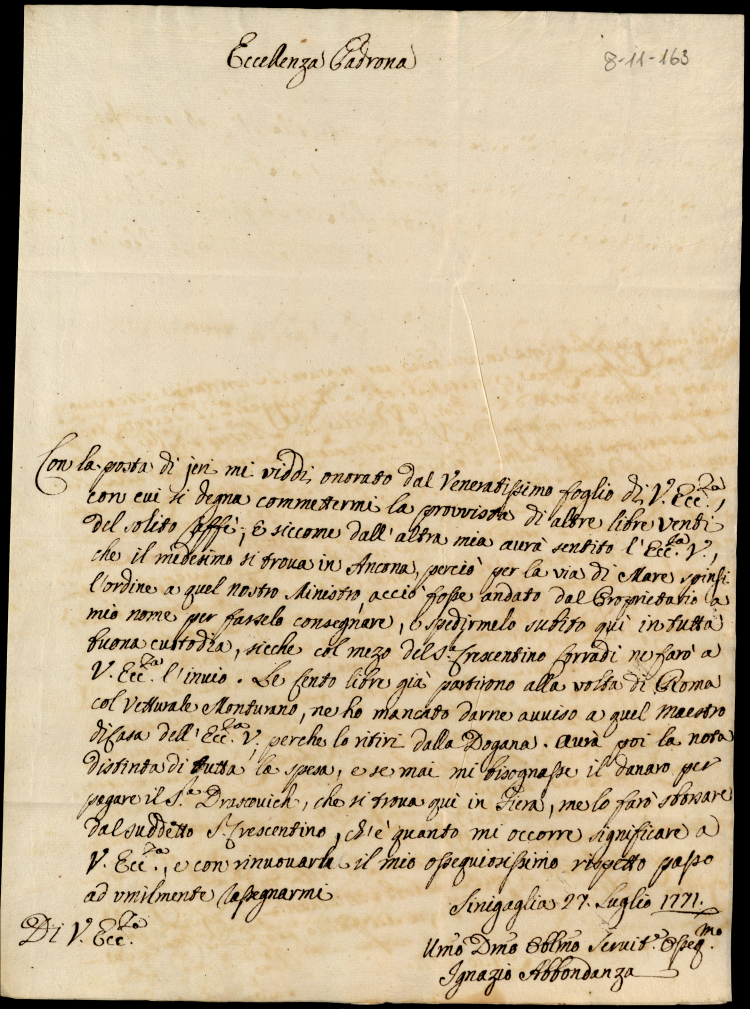 Eccellenza Padrona
8-11-163
Con la posta di jeri mi viddi onorato dal Veneratissimo foglio di V. Ecc.za,
con cui si degna commettermi la provvista di altre libre venti
del solito Caffè; E siccome dall'altra mia aurà sentito l'Ecc.za V.,
che il medesimo si trova in Ancona, perciò per la via di Mare spinsi
l'ordine a quel nostro Ministro, acciò fosse andato dal Proprietario a
mio nome per farselo consegnare, e spedirmelo subito quì in tutta
buona custodia, sicche col mezo del S.r Crescentino Corradi ne farò a
V. Ecc.za l'invio. Le Cento libre già partirono alla volta di Roma
col Vetturale Monturano, ne ho mancato darne avviso a quel Maestro
di Casa dell'Ecc.za V. perche lo ritiri dalla Dogana. Aurà poi la nota
distinta di tutta la spesa, e se mai mi bisognasse il danaro per
pagare il S.r Drascovich, che si trova quì in Fiera, me lo farò sborsare
dal suddetto S.r Crescentino, ch'è quanto mi occorre significare a
V. Ecc.za, e con rinuovarle il mio ossequiosissimo rispetto passo
ad umilmente rassegnarmi
Sinigaglia 27. Luglio 1771.
Di V. Ecc.za
Umo Dmo Oblmo Servit.e Osseq.mo
Ignazio Abbondanza